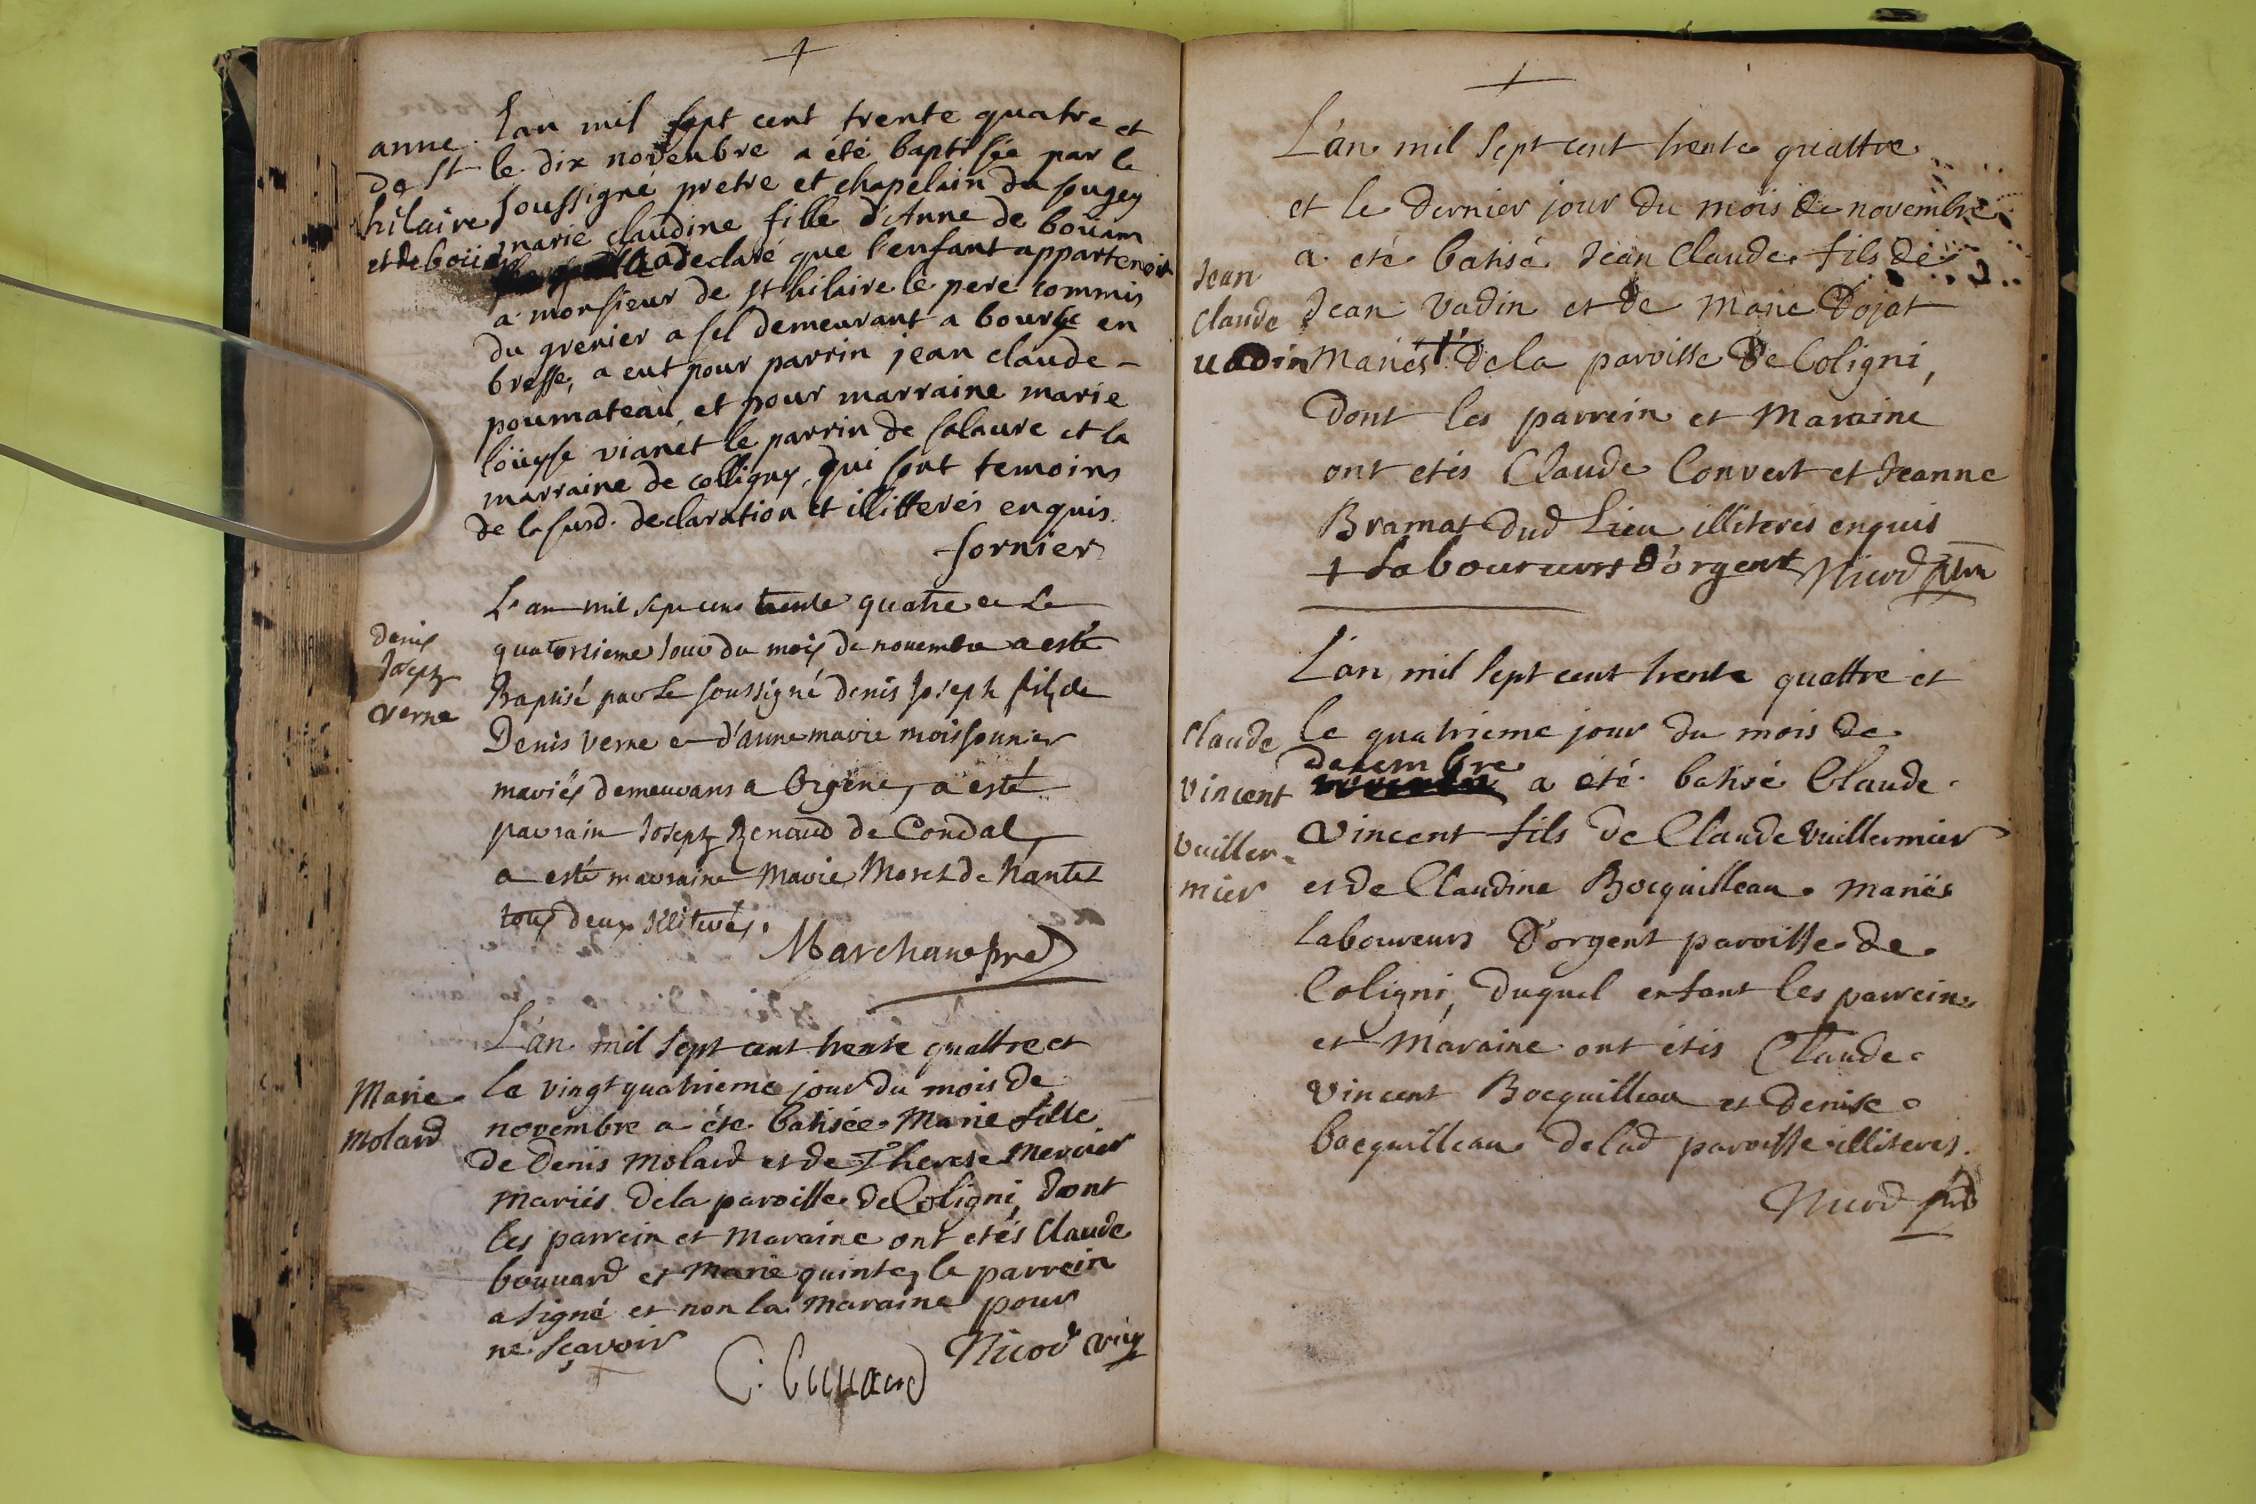 anne
de st
hilaire
et de boüan
lan mil sept cent trente quatre et
le dix novenbre a été baptisée par le
soussigné pretre et chapelain du sougey
marie claudine fille d'Anne de boüam
a declaré que l'enfant appartenoit
a monsieur de st hilaire le pere commis
du grenier a sel demeurant a bourg en
bresse, a eut pour parrin jean claude
poumateau et pour marraine marie
loüyse vianét le parrin de salavre et la
marraine de colligny, qui sont temoins
de la susd. declaration et illitterés enquis.
fornier
denis
Joseph
verne
L'an mil sept cens trente quatre et Le
quatorsieme Jour du mois de novembre a esté
Baptisé par Le soussigné denis Joseph fils de
Denis verne et d'anne marie moissonnier
mariés demeurans a Orgene, a esté
parrain Joseph Renaud de Condal,
a esté marraine Marie Morel de Nantel
tous deux Illiterés.
Marchant pre
Marie
Molard
L'an mil sept cent trente quattre et
le vingt quatrieme jour du mois de
novembre a éte batisée Marie fille
de Denis Molard et de Therese Mercier
Mariés de la paroisse de Coligni, dont
les parrein et Maraine ont etés Claude
bouvard et Marie quinte, le parrein
a signé et non la Maraine pour
ne sçavoir
C. Cuuard
Nicod vic
Jean
Claude
vadin
L'an mil sept cent trente quattre
et le dernier jour du mois de novembre
a eté batisé Jean Claude fils de
Jean Vadin et de Marie Dojat
Mariés + de la paroisse de Coligni,
Dont les parrein et Maraine
ont etés Claude Convert et Jeanne
Bramat dud Lieu illiterés enquis
+ Laboureurs d'orgent Nicod
Claude
Vincent
vuiller=
mier
L'an mil sept cent trente quattre et
le quatrieme jour du mois de
decembre
a été batisé Claude
Vincent fils de Claude Vuillermier
et de Claudine Bocquilleau Mariés
Laboureurs d'orgent paroisse de
Coligni, duquel enfant les parrein
et Maraine ont étés Claude
Vincent Bocquilleau et Denise
bocquilleau de lad paroisse illiterés.
Nicod